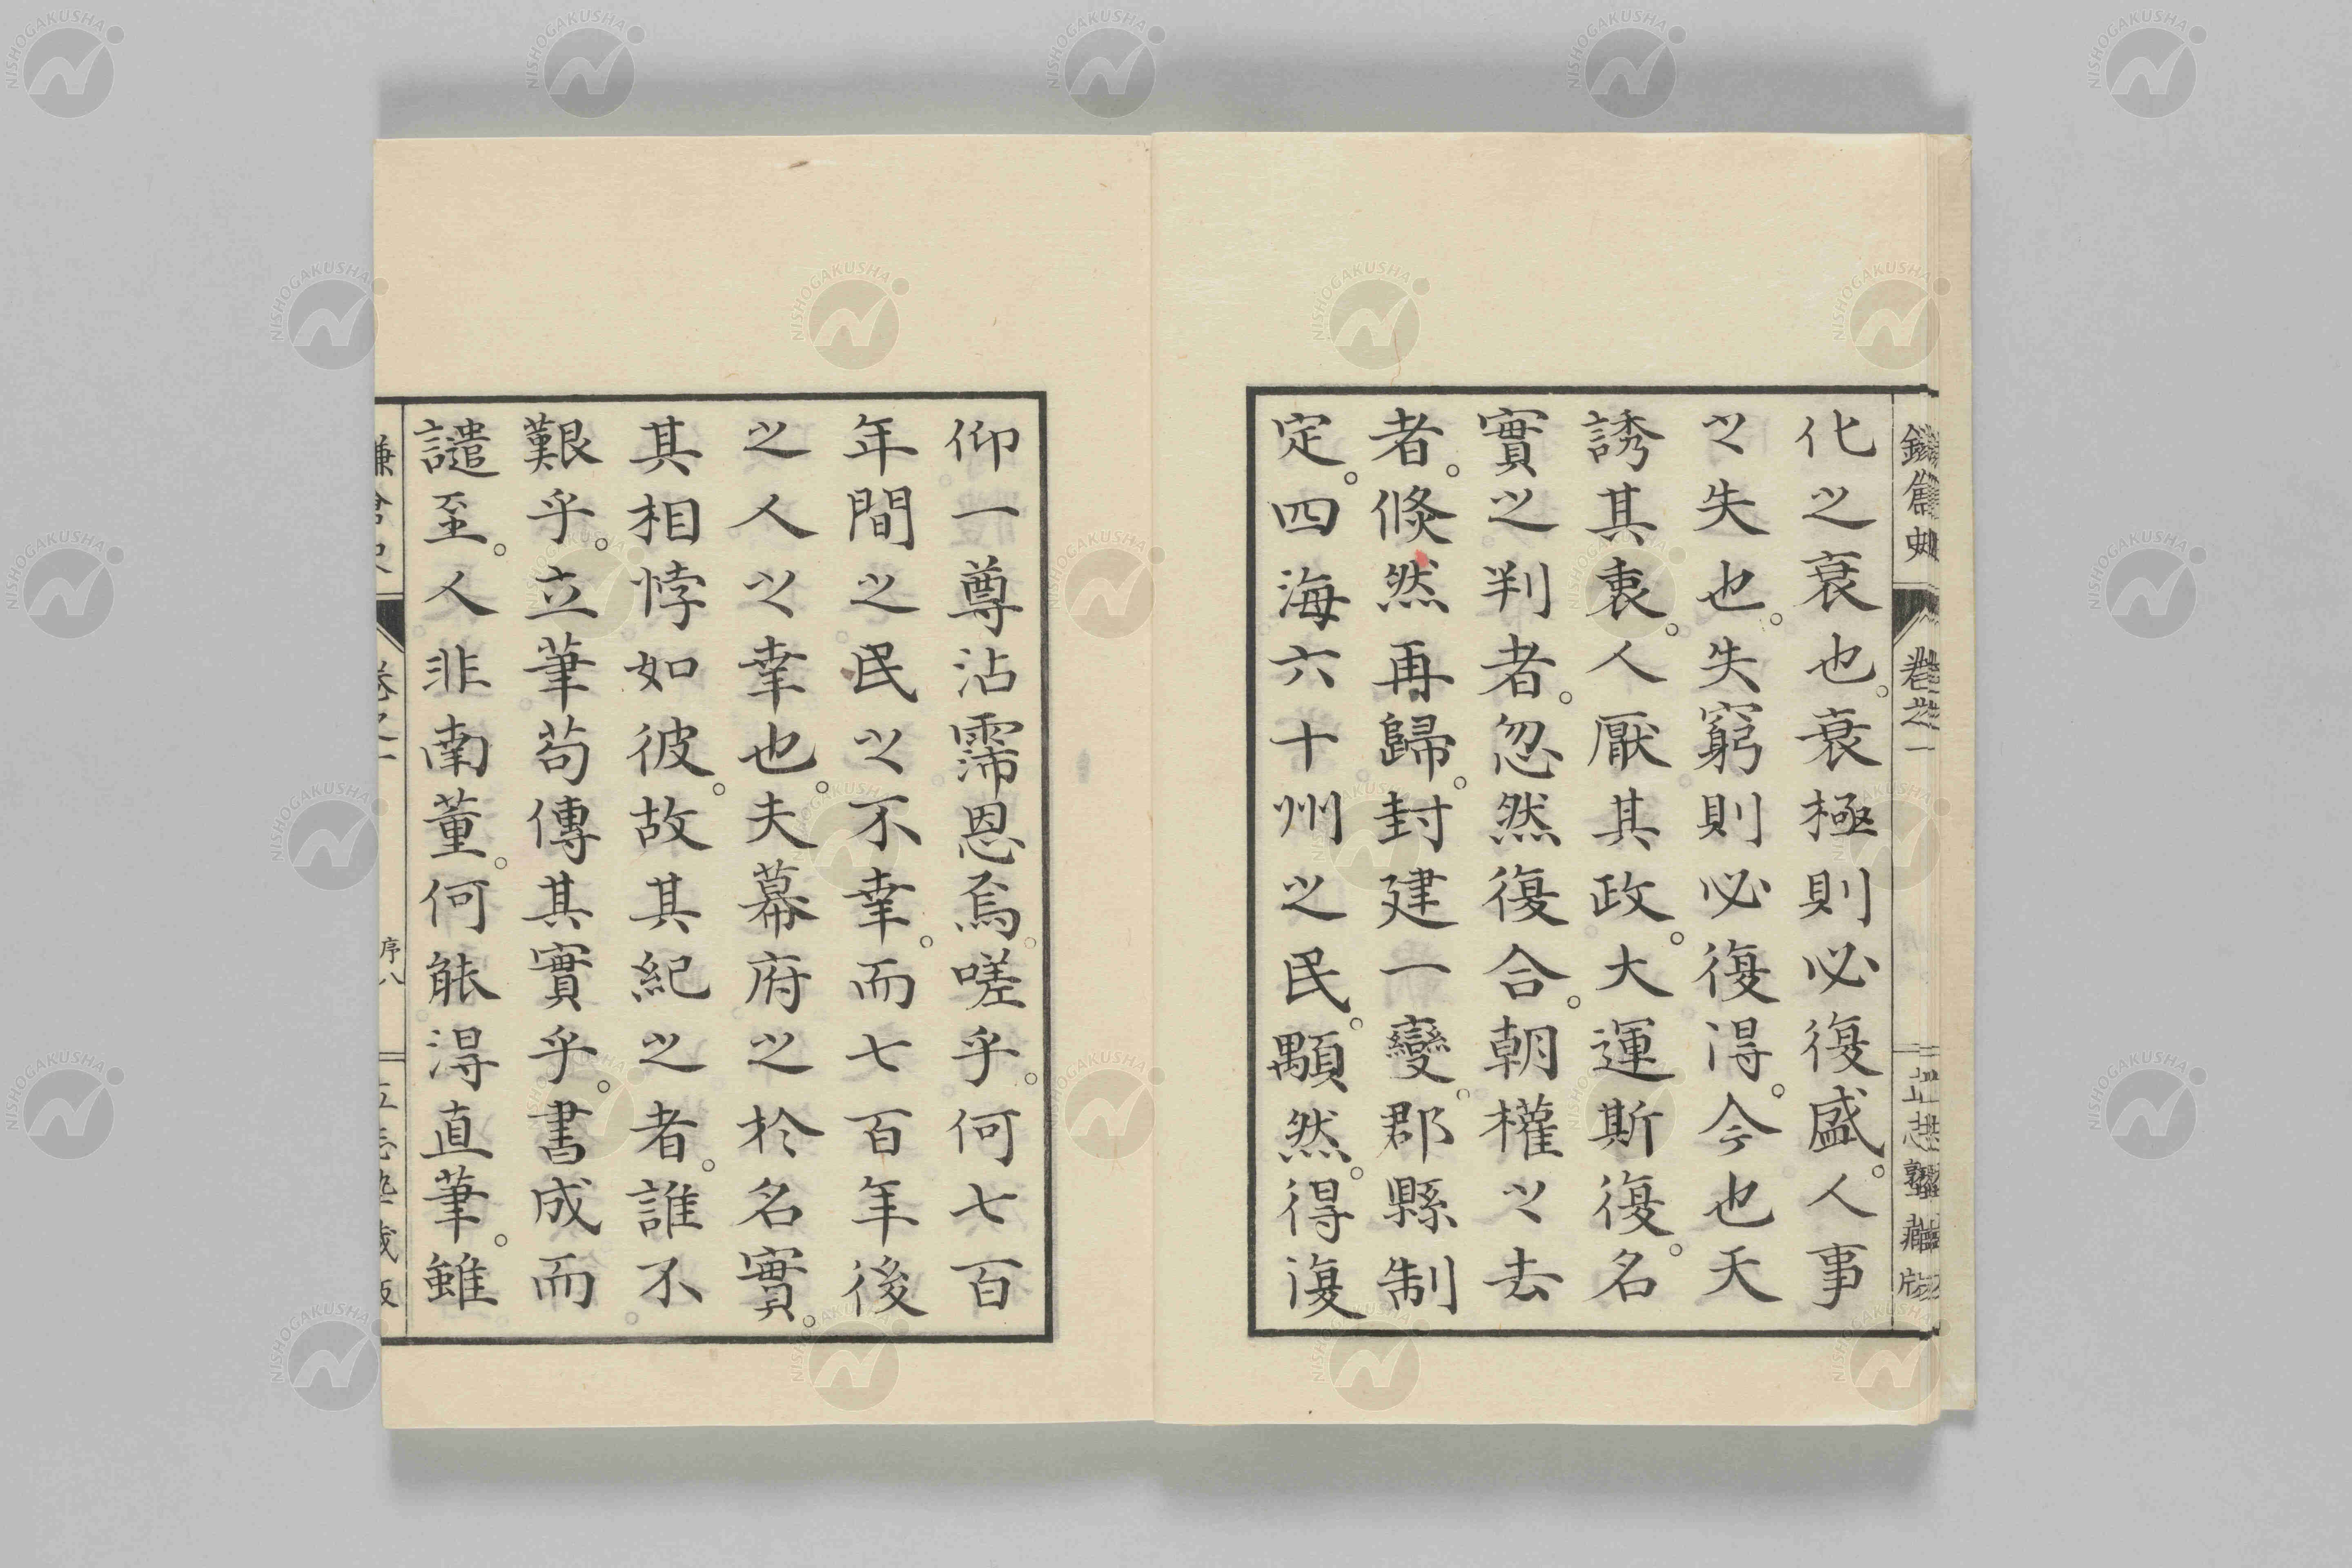 化之衰也。衰極則必復盛。人事
之失也。失窮則必復得。今也天
誘其衷。人厭其政。大運斯復。名
實之判者。忽然復合。朝權之去
者。倐然再歸。封建一變。郡縣制
定。四海六十州之民。顒然。得復
仰一尊沾霈恩焉。嗟乎。何七百
年間之民之不幸。而七百年後
之人之幸也。夫幕府之於名實。
其相悖如彼。故其紀之者。誰不
艱乎。立筆苟傳其實乎。書成而
譴至。人非南董。何能得直筆。雖
卷之一
序八
NISHOGAKUSHA